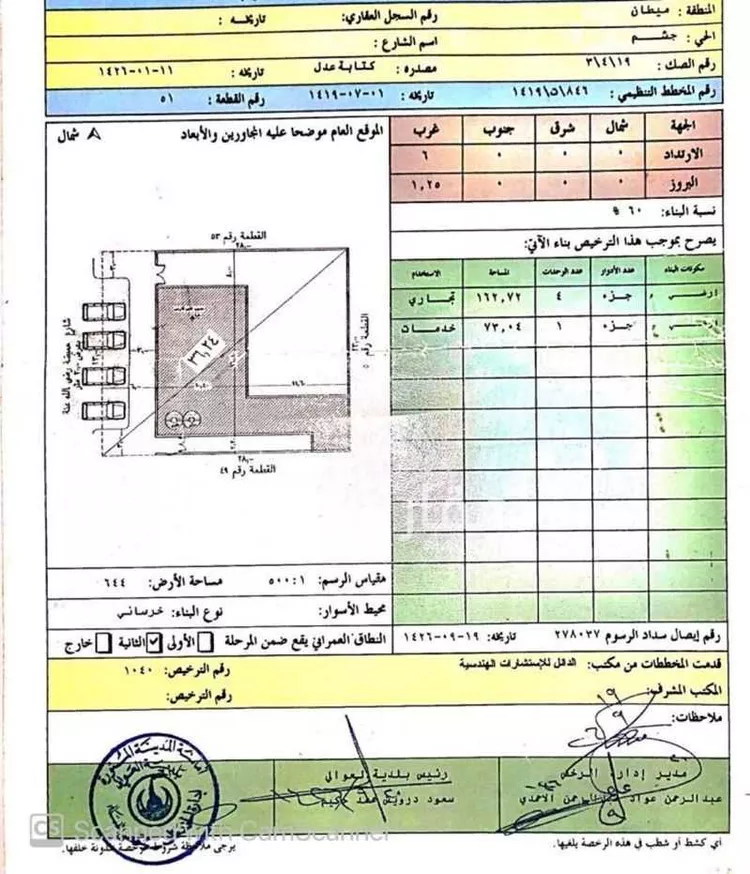 المنطقة : ميطان رقم السجل العقاري: تاريخه :
الحي : جشم اسم الشارع :
رقم الصك : ٣/٤/١٩ مصدره : كتابة عدل تاريخه : ١١-٠١-١٤٢٦
رقم المخطط التنظيمي : ١٤١٩/٥/٨٤٦ تاريخه : ٠١-٠٧-١٤١٩ رقم القطعة : ٥١
الجهة شمال شرق جنوب غرب
الارتداد ٠ ٠ ٠ ٦
البروز ٠ ٠ ٠ ١,٢٥
نسبة البناء: ٦٠ %
يصرح بموجب هذا الترخيص بناء الآتي:
مكونات البناء عدد الأدوار عدد الوحدات المساحة الاستخدام
أرضي جزء ٤ ١٦٢,٧٢ تجاري
أرضي جزء ١ ٧٣,٠٤ خدمات
الموقع العام موضحا عليه المجاورين والأبعاد
شمال
القطعة رقم ٥٣
٢٨,٠٠
القطعة رقم
شارع خميصة رضي الله عنه
٣٦,٢٤
٢٨,٠٠
القطعة رقم ٤٩
مقياس الرسم: ٥٠٠:١ مساحة الأرض: ٦٤٤
محيط الأسوار: نوع البناء: خرساني
رقم إيصال سداد الرسوم ٢٧٨٠٣٧ تاريخه: ١٩-٠٩-١٤٢٦
النطاق العمراني يقع ضمن المرحلة الأولى الثانية خارج
قدمت المخططات من مكتب: الدائل للإستشارات الهندسية رقم الترخيص: ١٠٤٠
المكتب المشرف: رقم الترخيص:
ملاحظات:
مدير إدارة الرخص رئيس بلدية العوالي
عبدالرحمن عواد الأحمدي سعود درويش
أي كشط أو شطب في هذه الرخصة يلغيها.
يرجى ملاحظة شروط الرخصة المدونة خلفها.
CS Scanned with CamScanner